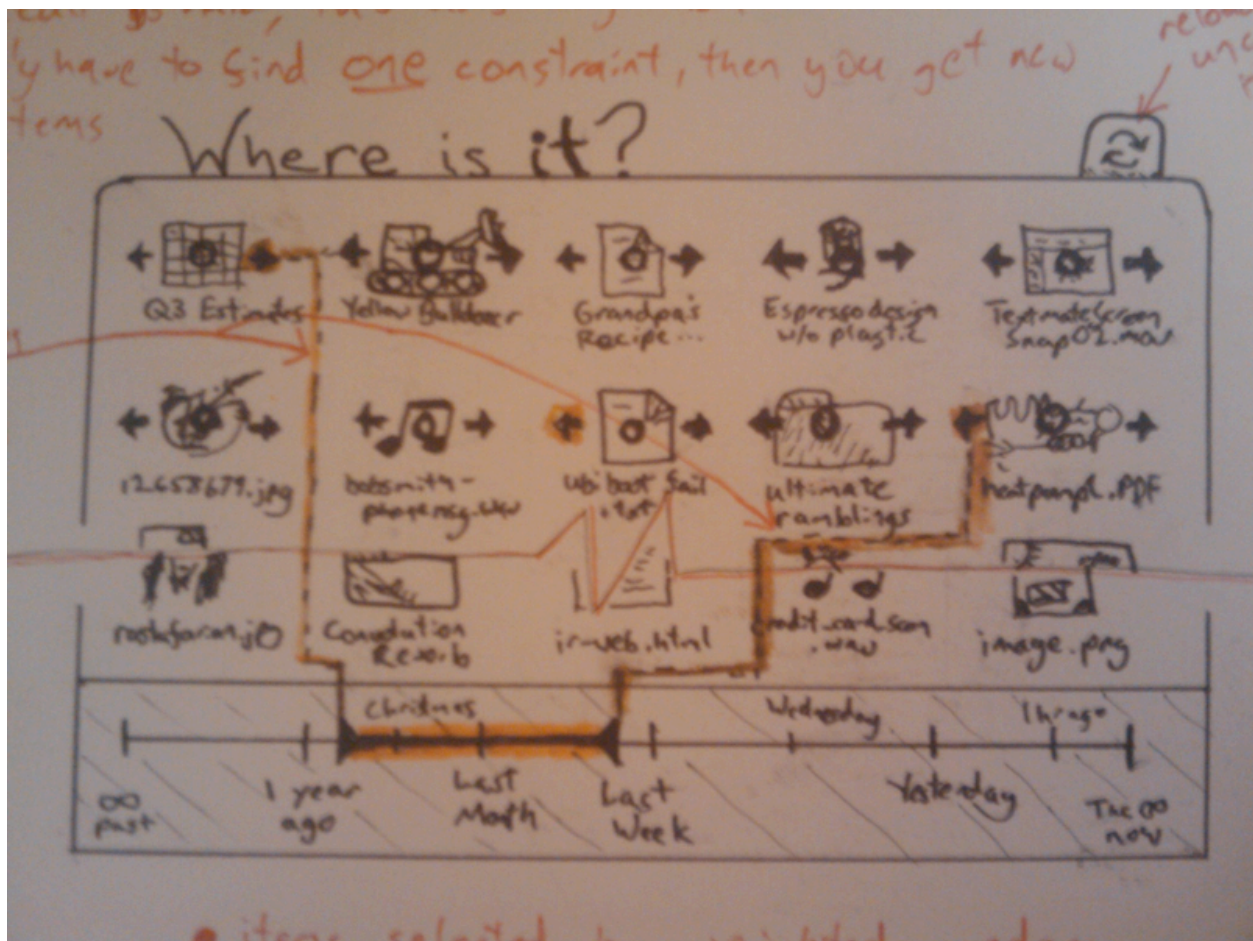 y have to find one constraint, then you get new
tems
Where is it?
Q3 Estimates
Yellow Bulldozer
Grandpa's
Recipe ...
Espresso design
w/o plastic
Textmate Screen
Snap02.mov
12658679.jpg
bobsmith-
ubiboot fail
.txt
ultimate
ramblings
heatpump1.PDF
Convolution
Reverb
ir-web.html
credit_card_scan
.wav
image.png
Christmas
Wednesday
1 hr ago
∞
past
1 year
ago
Last
Month
Last
Week
Yesterday
The
now
items selected by